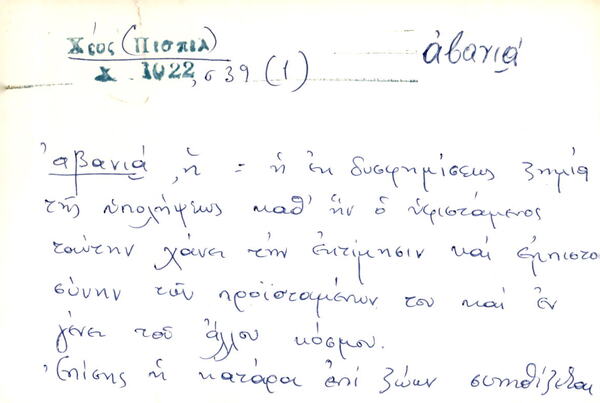 Χίος (Πισπιλ)
χ 1022, σ 39 (1)
ἀβανιά
ἀβανιά, ἡ = ἡ ἐκ δυσφημίσεως ζημία
τῆς ὑπολήψεως καθ' ἣν ὁ ὑφιστάμενος
ταύτην χάνει τὴν ἐκτίμησιν καὶ ἐμπιστο
σύνην τῶν προϊσταμένων του καὶ ἐν
γένει τοῦ ἄλλου κόσμου.
Ἐπίσης ἡ κατάρα ἐπὶ ζώων συνηθίζεται